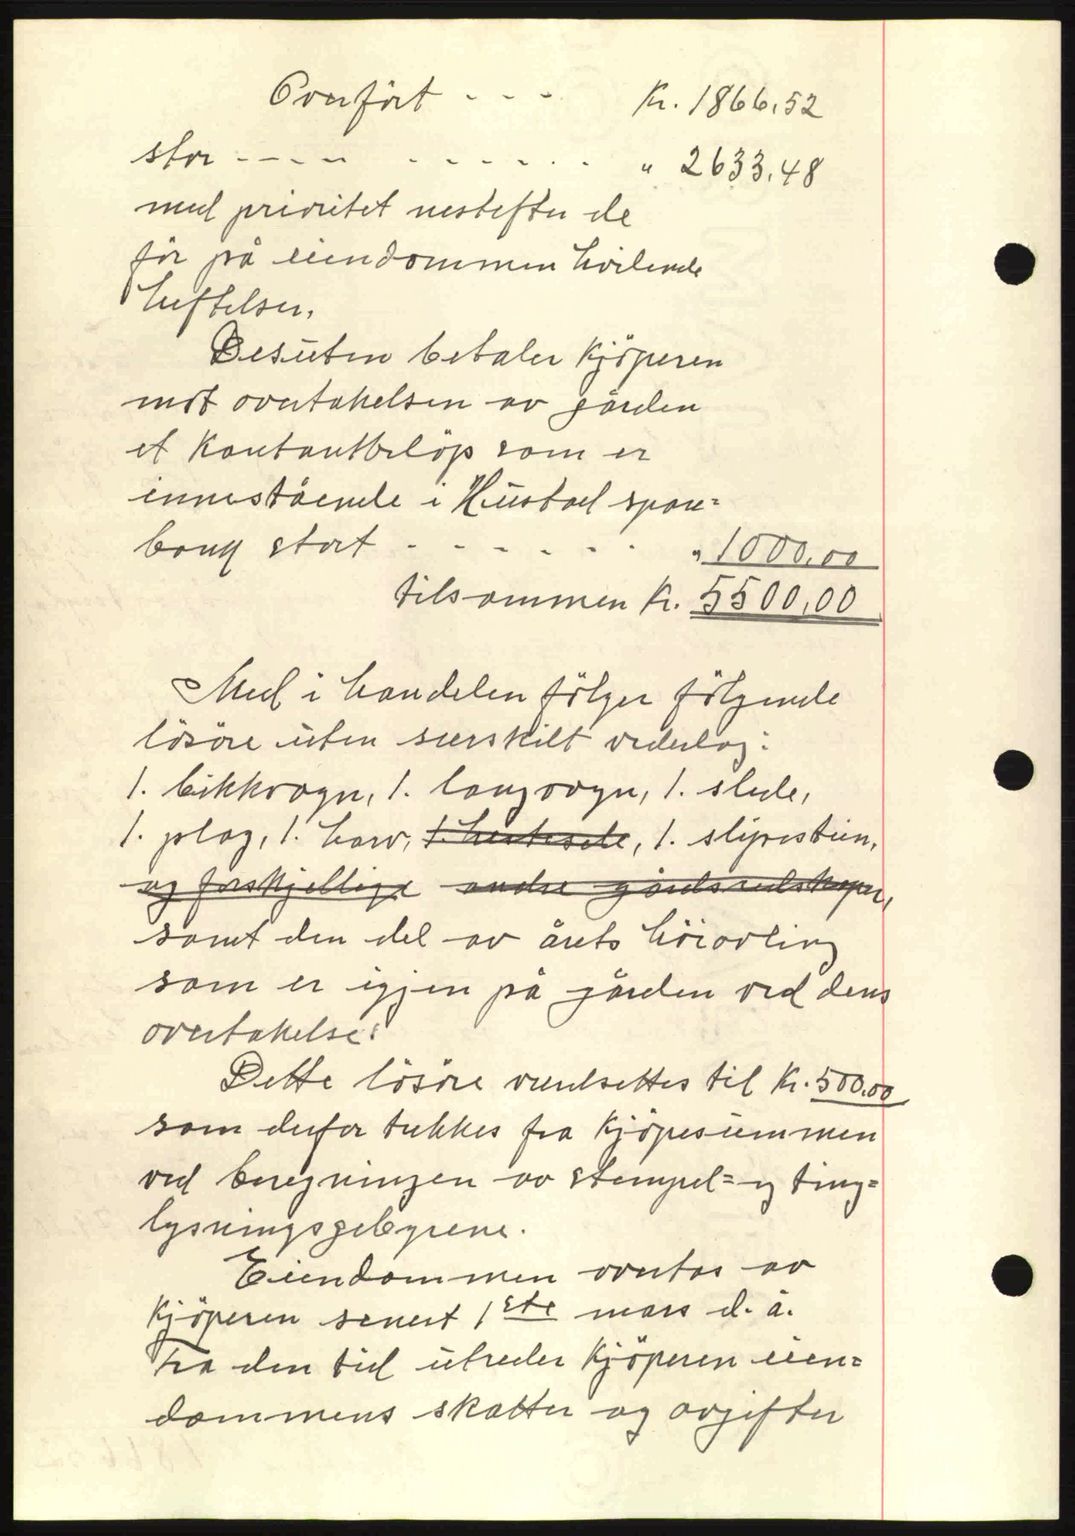 Overført - - - Kr. 1866,52
stor - - - - - - - - - - " 2633,48
med prioritet nestefter de
før på eiendommen hvilende
heftelser.
Desuten betaler kjöperen
mot overtakelsen av gården
et kontantbelöp som er
innestående i Hustad spare=
bank stort - - - - - - " 1000,00
tilsammen kr. 5500,00
Med i handelen fölger fölgende
lösöre uten særskilt vederlag:
1. kikkvogn, 1. langvogn, 1. slede,
1. plog, 1. harv, 1. hestesele, 1. slipestein,
og forskjellige andre gårdsredskaper,
samt den del av årets höiavling
som er igjen på gården ved dens
overtakelse.
Dette lösöre verdsettes til kr. 500,00
som derfor trekkes fra kjöpesummen
ved beregningen av stempel= og ting=
lysningsgebyrene.
Eiendommen overtas av
kjöperen senest 1ste mars d. å.
Fra den tid utreder kjöperen eien=
dommens skatter og avgifter